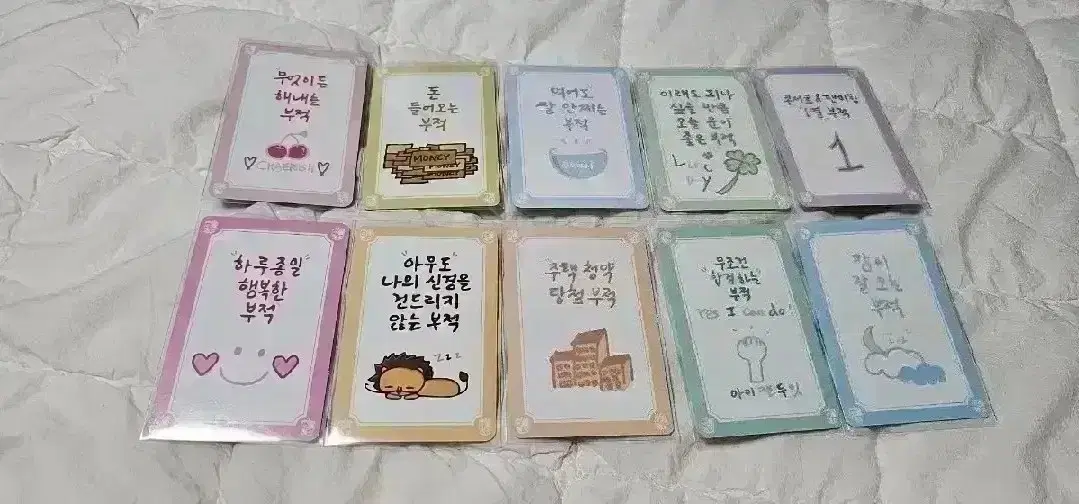 무엇이든
해내는
부적
돈
들어오는
부적
MONEY
먹어도
살 안찌는
부적
이래도 되나
싶을 만큼
오늘 운이
좋은 부적
Lucky
Day
콘서트&팬미팅
1열 부적
1
"하루종일"
행복한
부적
"아무도
나의 신경을
건드리지
않는 부적
zzz
"주택 청약"
당첨 부적
"무조건
합격하는"
부적
Yes I can do!
아이캔두잇
"잠이
잘 오는"
부적